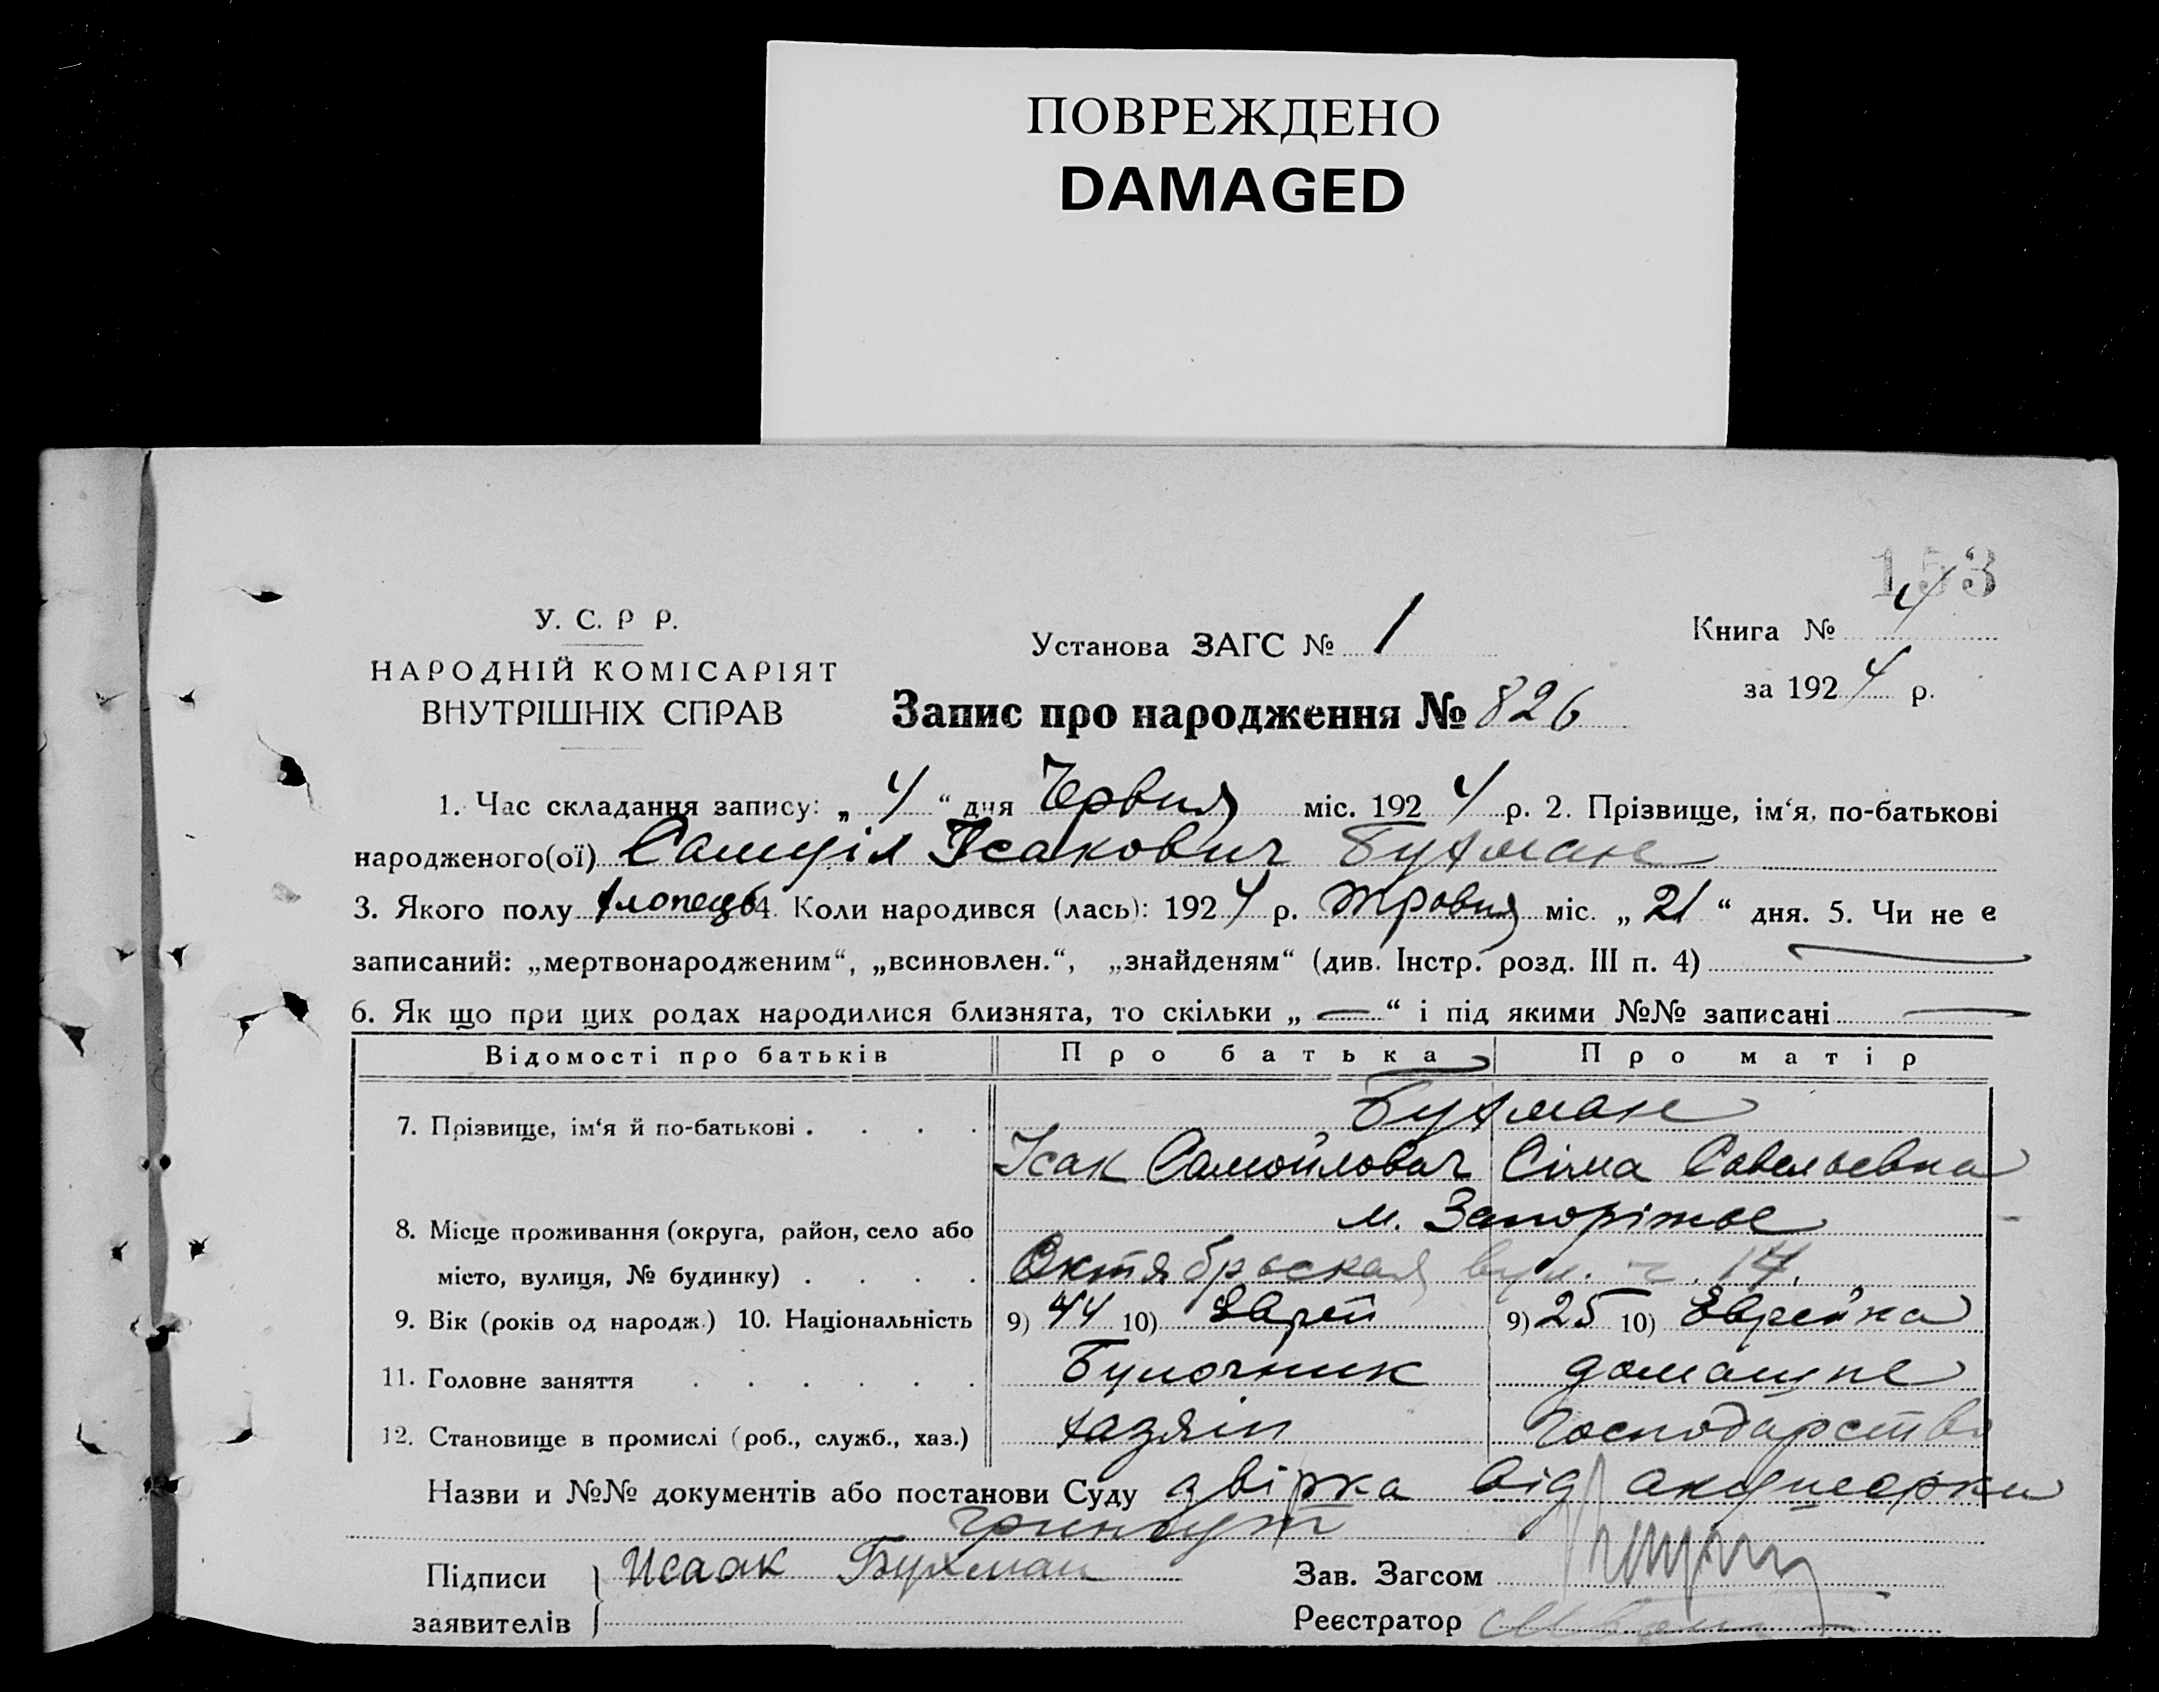 ПОВРЕЖДЕНО
DAMAGED
153
У. С. Р Р.
НАРОДНІЙ КОМІСАРІЯТ
ВНУТРІШНІХ СПРАВ
Установа ЗАГС № 1
Книга № 4
за 1924 р.
Запис про народження № 826
1. Час складання запису: „ 4 “ дня Червня міс. 1924 р. 2. Прізвище, ім‘я, по-батькові
народженого(ої) Самуіл Ісакович Бухман
3. Якого полу хлопець 4. Коли народився (лась): 1924 р. травня міс. „ 21 “ дня. 5. Чи не є
записаний: „мертвонародженим“, „всиновлен.“, „знайденям“ (див. Інстр. розд. III п. 4) —
6. Як що при цих родах народилися близнята, то скільки „ — “ і під якими №№ записані —
Відомості про батьків Про батька Про матір
7. Прізвище, ім‘я й по-батькові . . . . Бухман
Ісак Самойлович Сіма Савельевна
8. Місце проживання (округа, район, село або м. Запоріжье
місто, вулиця, № будинку) . . . . Октябрьская вул. ч. 14.
9. Вік (років од народж.) 10. Національність 9) 44 10) Еврей 9) 25 10) Еврейка
11. Головне заняття . . . . . . Булочник домашне
12. Становище в промислі (роб., служб., хаз.) хазяін господарство
Назви и №№ документів або постанови Суду двірка від акушерки
Підписи заявителів Исаак Бухман
Зав. Загсом
Реєстратор